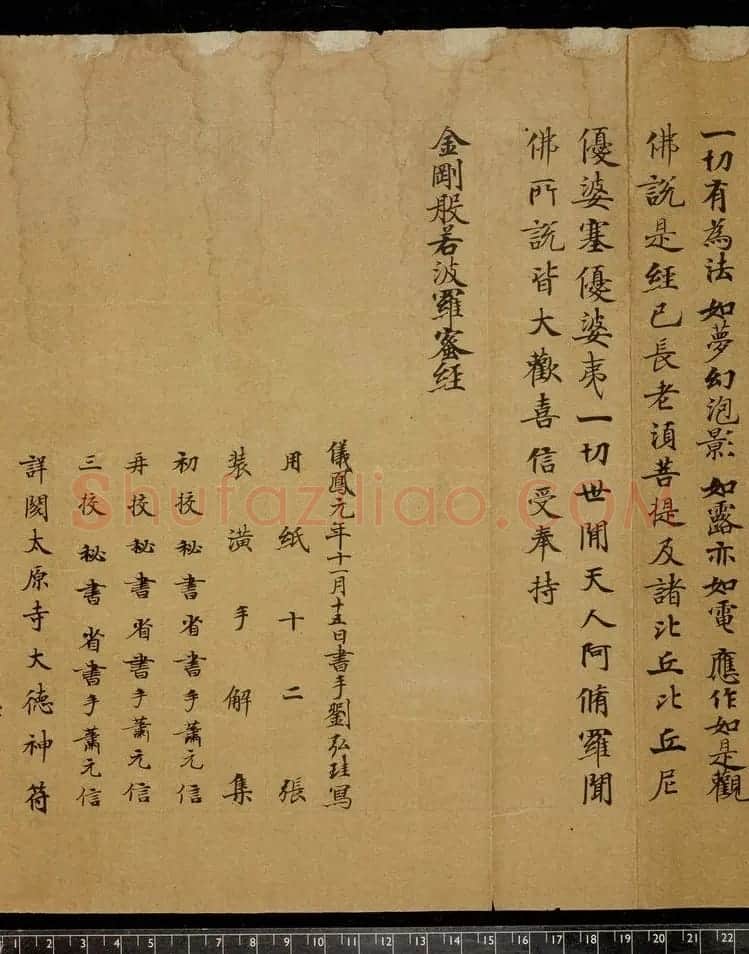 一切有為法如夢幻泡影如露亦如電應作如是觀
佛說是經已長老湏菩提及諸比丘比丘尼
優婆塞優婆夷一切世間天人阿脩羅聞
佛所說皆大歡喜信受奉持
金剛般若波羅蜜經
儀鳳元年十一月十五日書手劉弘珪寫
用紙十二張
装潢手解集
初挍秘書省書手蕭元信
再挍秘書省書手蕭元信
三挍秘書省書手蕭元信
詳閱太原寺大德神符
Shufaziliao.COM
1 2 3 4 5 6 7 8 9 10 11 12 13 14 15 16 17 18 19 20 21 22